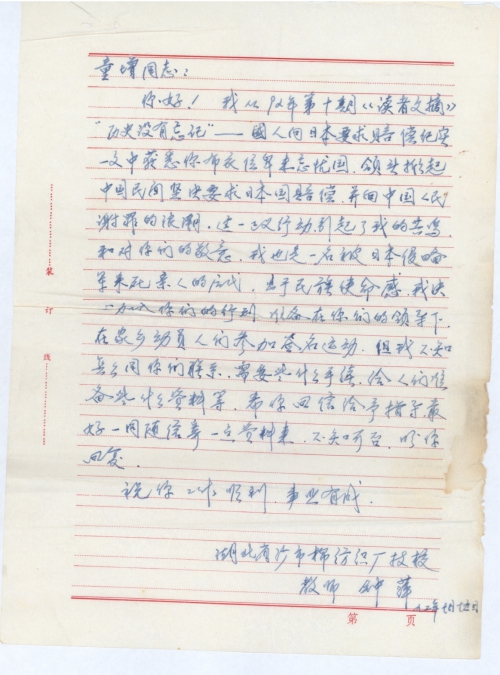 童增同志：
你好！我从92年第十期《读者文摘》
"历史没有忘记"——国人向日本要求赔偿纪实
一文中获悉你布衣位卑未忘忧国，领头掀起
中国民间坚决要求日本国赔偿，并向中国人民
谢罪的浪潮，这一正义行动引起了我的共鸣
和对你们的敬意，我也是一名被日本侵略
军杀死亲人的后代，出于民族使命感，我决
加入你们的行列 准备在你们的领导下，
在家乡动员人们参加签名运动，但我不知
怎么同你们联系，需要些什么手续，给人们准
备些什么资料等，希你回信给予指导最
好一同随信寄一点资料来，不知可否，盼你
回复。
祝你工作顺利，事业有成。
湖北省沙市棉纺织厂技校
教师 钟萍
装
订
线
第 页